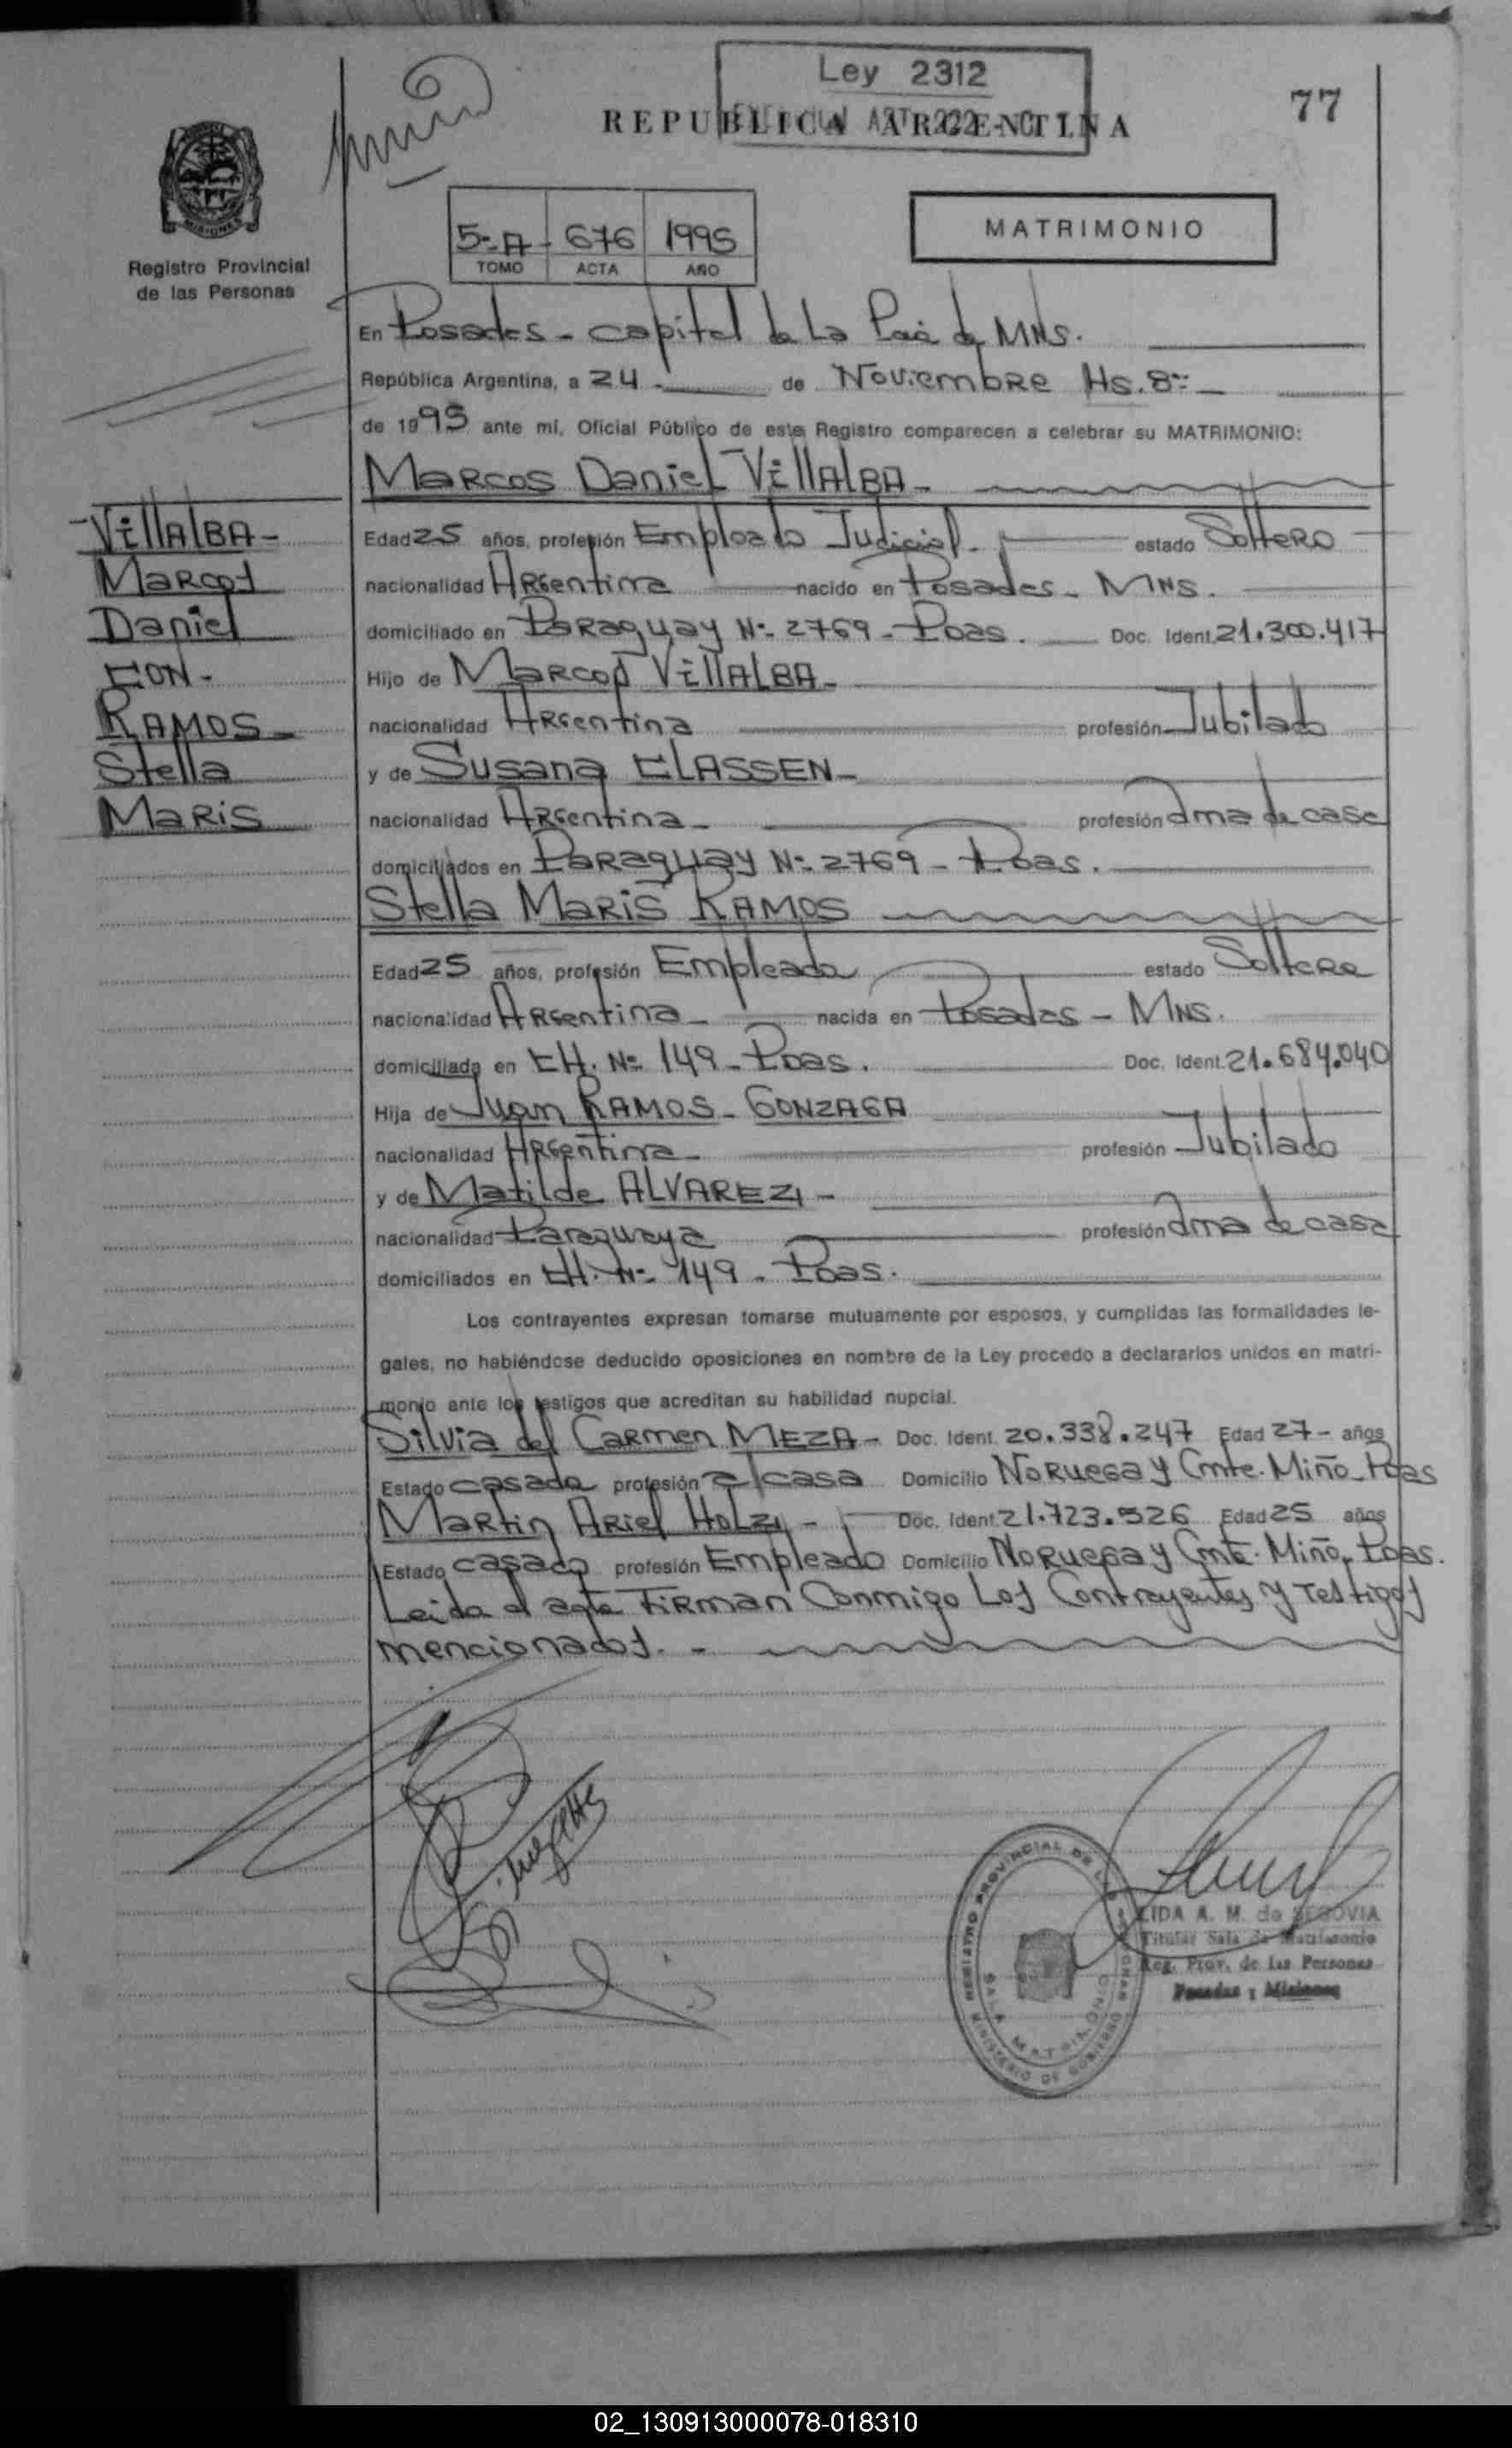 Ley 2312
REPUBLICA ARGENTINA
77
MISIONES
Registro Provincial
de las Personas
5º-A- 676 1995
TOMO ACTA AÑO
MATRIMONIO
En Posadas - capital de La Pcia de MNS.
República Argentina, a 24 - de Noviembre Hs. 8:-
de 1995 ante mí, Oficial Público de este Registro comparecen a celebrar su MATRIMONIO:
Marcos Daniel VillALBA-
-VillALBA-
Marcos
Daniel
CON-
RAMOS-
Stella
MARIS
Edad 25 años, profesión Empleado Judicial- estado Soltero
nacionalidad ARgentina nacido en Posadas- MNS.
domiciliado en PaRaguay Nº- 2769- Pdas. Doc. Ident. 21.300.417
Hijo de Marcos VillALBA-
nacionalidad ARgentina profesión Jubilado
y de Susana CLASSEN-
nacionalidad ARgentina- profesión ama de casa
domiciliados en PaRaguay Nº- 2769- Pdas.
Stella MaRis RAMOS
Edad 25 años, profesión Empleada estado Soltera
nacionalidad ARgentina- nacida en Posadas- MNS.
domiciliada en CH. Nº 149- Pdas. Doc. Ident. 21.684.040
Hija de Juan RAMOS- GONZAGA
nacionalidad ARgentina- profesión Jubilado
y de Matilde ALVAREZ-
nacionalidad Paraguaya profesión ama de casa
domiciliados en CH. Nº- 149- Pdas.
Los contrayentes expresan tomarse mutuamente por esposos, y cumplidas las formalidades le-
gales, no habiéndose deducido oposiciones en nombre de la Ley procedo a declararlos unidos en matri-
monio ante los testigos que acreditan su habilidad nupcial.
Silvia del Carmen MEZA- Doc. Ident. 20.338.247 Edad 27- años
Estado casada profesión a/casa Domicilio NoRuega y Cmte. Miño- Pdas
Martin Ariel HOLZ- Doc. Ident. 21.723.526 Edad 25 años
Estado casado profesión Empleado Domicilio NoRuega y Cmte. Miño- Pdas.
Leida el acta FiRman Conmigo Los Contrayentes y Testigos
mencionados.-
REGISTRO PROVINCIAL DE LAS PERSONAS
SALA MATRIMONIO
MINISTERIO DE GOBIERNO
LIDA A. M. de SEGOVIA
Titular Sala de Matrimonio
Reg. Prov. de las Personas
Posadas : Misiones
02_130913000078-018310